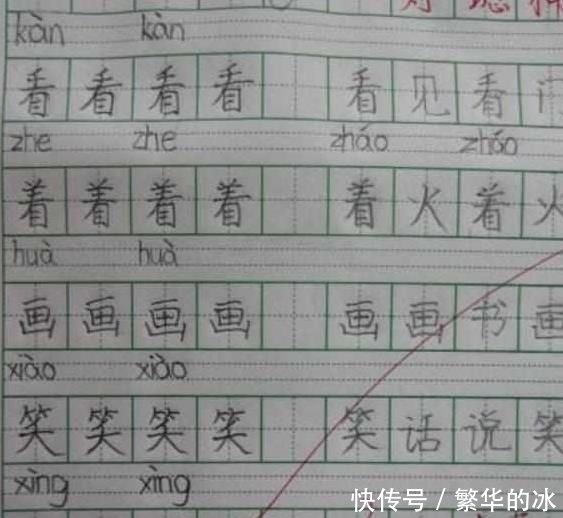 kàn kàn
看看看看 看见看门
zhe zhe zháo zháo
着着着着 着火着火
huà huà
画画画画 画画书画
xiào xiào
笑笑笑笑 笑话说笑
xìng xìng
快传号 / 繁华的冰